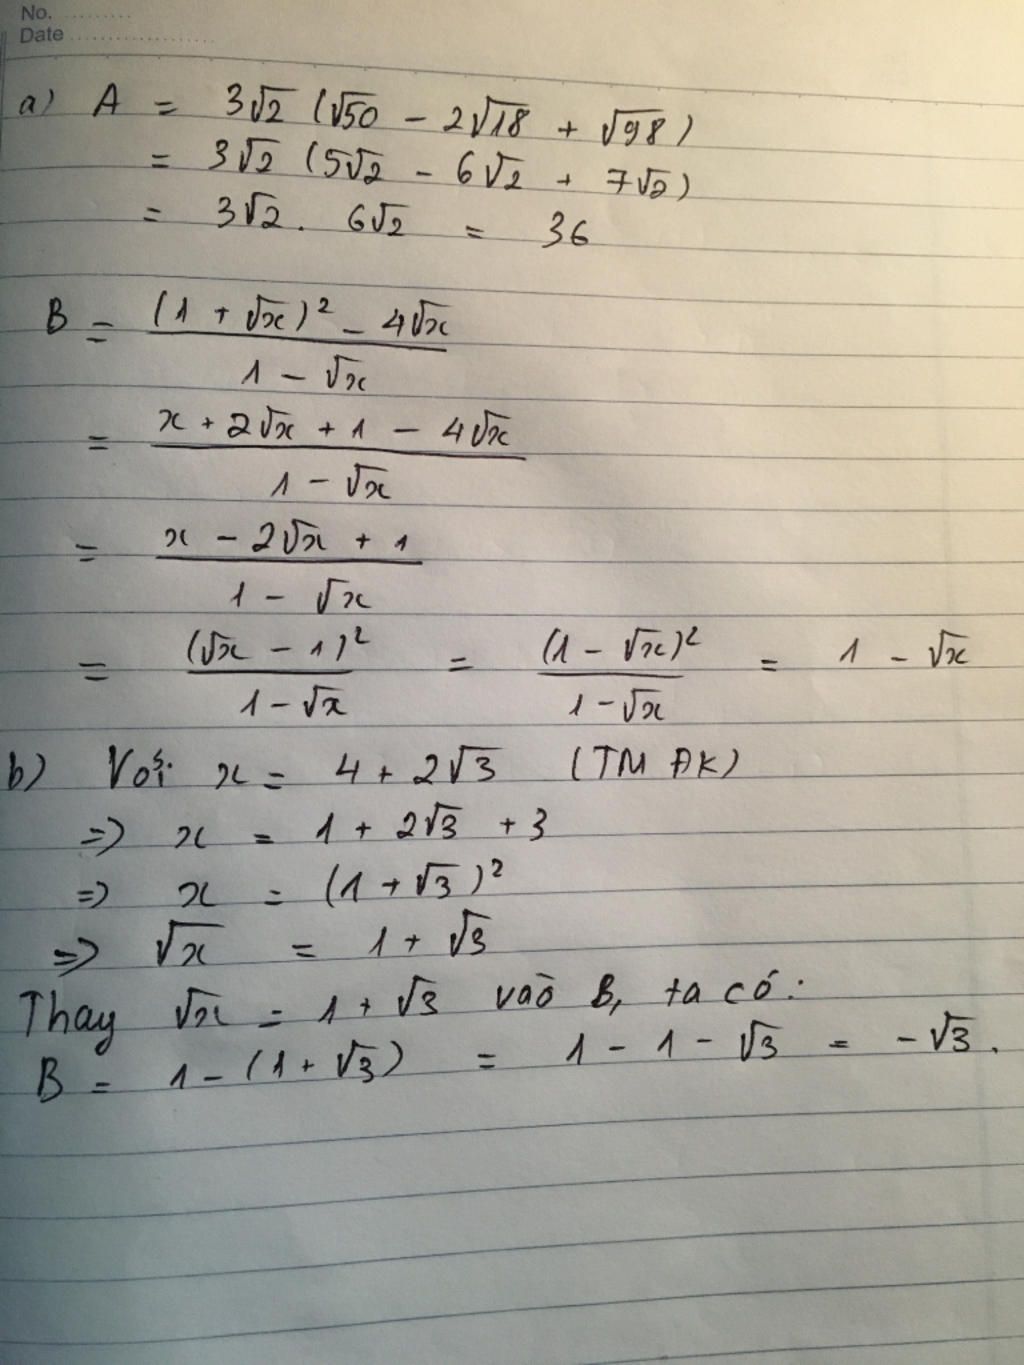 No. ..........
Date ....................
a) A = 3√2 (√50 - 2√18 + √98)
= 3√2 (5√2 - 6√2 + 7√2)
= 3√2 . 6√2 = 36
B = ((1 + √x)² - 4√x) / (1 - √x)
= (x + 2√x + 1 - 4√x) / (1 - √x)
= (x - 2√x + 1) / (1 - √x)
= (√x - 1)² / (1 - √x) = (1 - √x)² / (1 - √x) = 1 - √x
b) Với x = 4 + 2√3 (TM ĐK)
=> x = 1 + 2√3 + 3
=> x = (1 + √3)²
=> √x = 1 + √3
Thay √x = 1 + √3 vào B, ta có:
B = 1 - (1 + √3) = 1 - 1 - √3 = -√3.